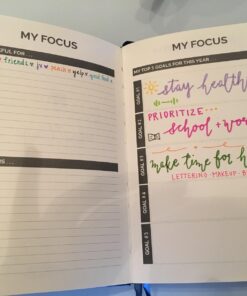 MY FOCUS
FUL FOR ...
friends
yelp
good food
MY FOCUS
MY TOP 5 GOALS FOR THIS YEAR
GOAL #1
stay health
GOAL #2
PRIORITIZE...
school + wor
GOAL #3
make time for h
LETTERING · MAKEUP · B
GOAL #4
GOAL #5